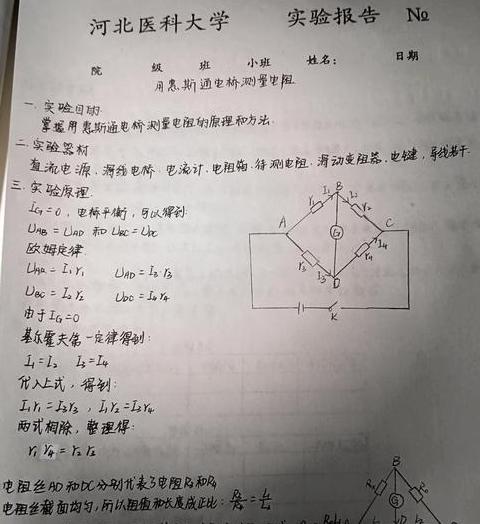 河北医科大学 实验报告 №
院 级 班 小班 姓名： 日期
用惠斯通电桥测量电阻
一. 实验目的
掌握用惠斯通电桥测量电阻的原理和方法.
二. 实验器材
直流电源、滑线电桥、电流计、电阻箱、待测电阻、滑动变阻器、电键、导线若干.
三. 实验原理
IG=0，电桥平衡，可以得到:
UAB=UAD 和 UBC=UDC
欧姆定律
UAB=I1r1 UAD=I3r3
UBC=I2r2 UDC=I4r4
由于IG=0
基尔霍夫第一定律得到:
I1=I2 I3=I4
代入上式，得到:
I1r1=I3r3，I1r2=I3r4
两式相除，整理得:
r1r4=r2r3
电阻丝AD和DC分别代表了电阻R3和R4
电阻丝截面均匀，所以阻值和长度成正比:
A
B
C
D
G
r1
I1
I2
r2
r3
I3
r4
I4
K
B
G
D